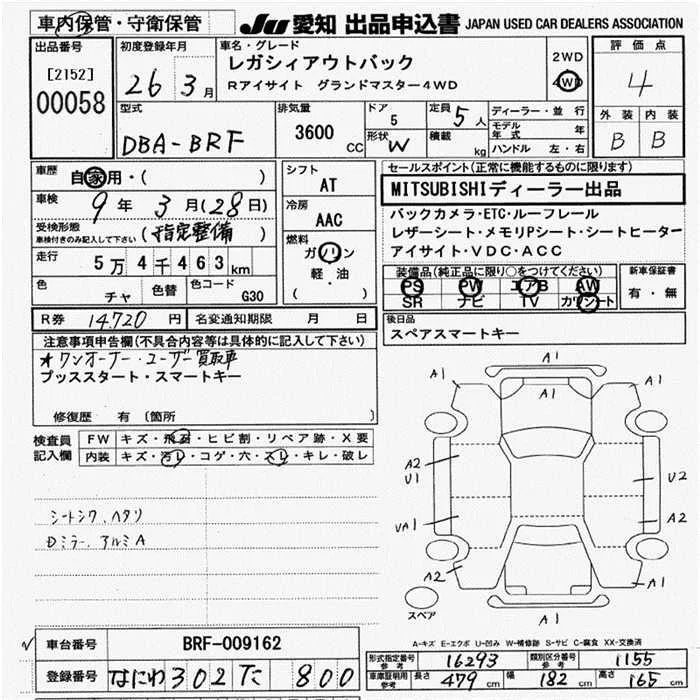 車内保管・守衛保管 Ju 愛知 出品申込書 JAPAN USED CAR DEALERS ASSOCIATION
出品番号 [2152] 00058
初度登録年月 26 3月
車名・グレード レガシィアウトバック
Rアイサイト グランドマスター4WD
2WD 4WD
評価点 4
外装 B 内装 B
型式 DBA-BRF
排気量 3600 CC
ドア 5 定員 5人
形状 W 積載 kg
ディーラー・並行
モデル年式 年
ハンドル 左・右
車歴 自家用・( )
車検 9年 3月(28日)
受検形態 (指定整備)
車検付きのみ記入して下さい
走行 5万4千463km
色 チャ 色替 色コード G30
シフト AT
冷房 AAC
燃料 ガソリン
軽・油
( )
セールスポイント(正常に機能するものに限ります)
MITSUBISHIディーラー出品
バックカメラ・ETC・ルーフレール
レザーシート・メモリPシート・シートヒーター
アイサイト・VDC・ACC
装備品(純正品に限り○をつけてください)
PS PW エアB AW
SR ナビ TV カワシート
新車保証書 有・無
後日品
スペアスマートキー
R券 14.720円 名変通知期限 月 日
注意事項申告欄(不具合内容等は具体的に記入して下さい)
オワンオーナー・ユーザー買取車
プッススタート・スマートキー
修復歴 有 〔箇所
検査員記入欄
FW キズ・飛石・ヒビ割・リペア跡・X要
内装 キズ・汚レ・コゲ・穴・スレ・キレ・破レ
シートシワ、ヘタリ
Dミラー、アルミA
A1
A1 A1 A1
A2
U1 U2
UA1 A2
A2 A1
スペア A1
A-キズ E-エクボ U-凹み W-補修跡 S-サビ C-腐食 XX-交換済
車台番号 BRF-009162
登録番号 なにわ 302 た 800
形式指定番号 参考 16293 類別区分番号 参考 1155
車庫証明用 参考 長さ 479cm 幅 182cm 高さ 165cm